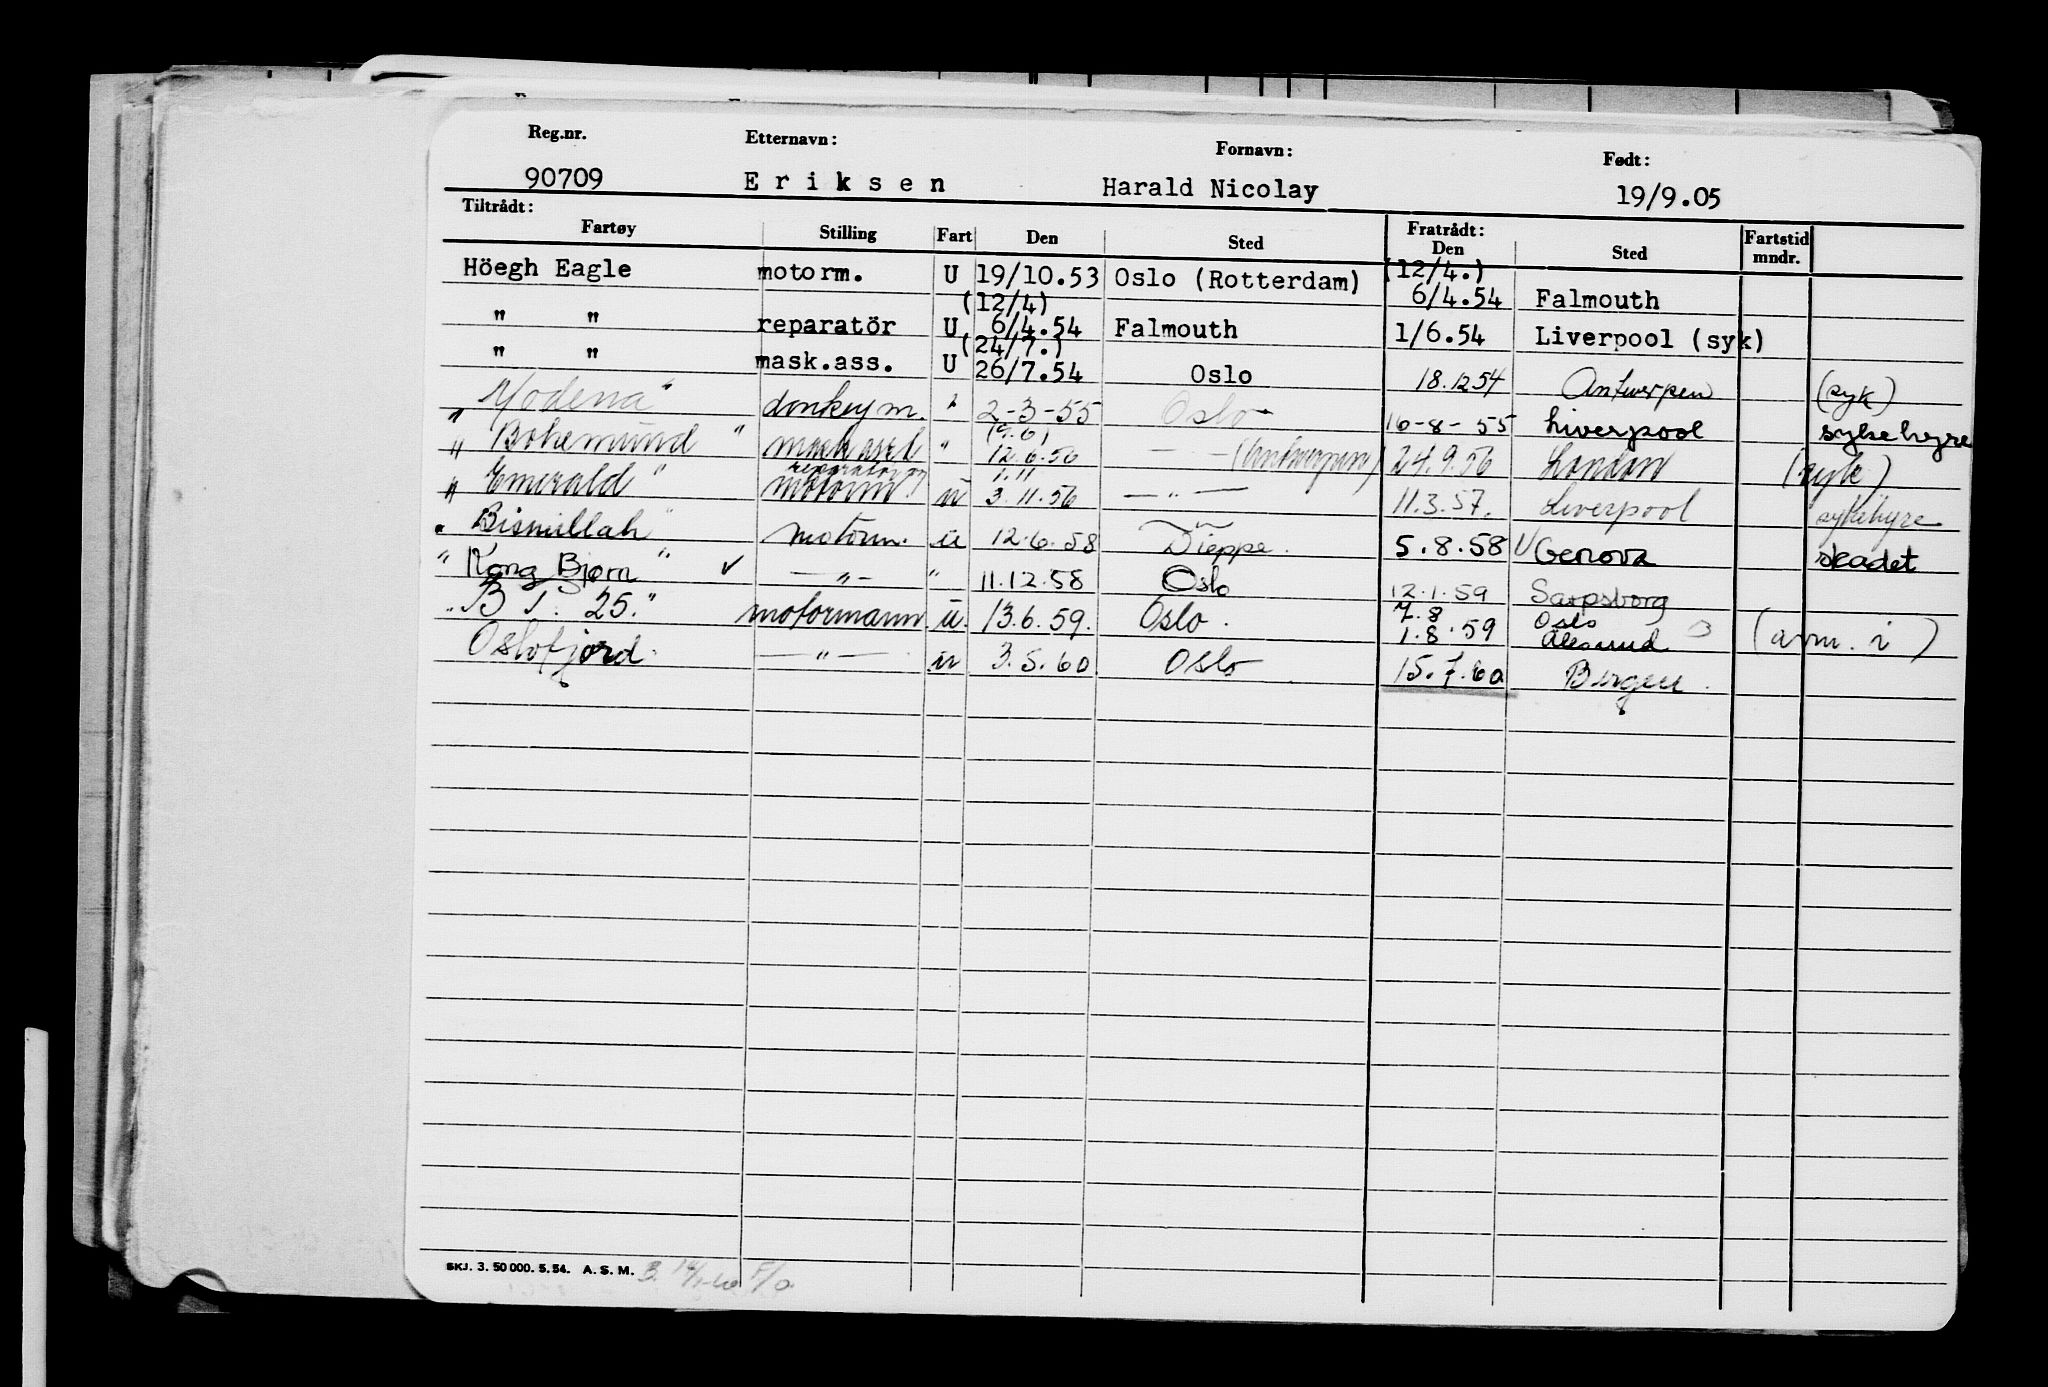 Reg.nr. Etternavn: Fornavn: Født:
90709 Eriksen Harald Nicolay 19/9.05
Tiltrådt: Fratrådt:
Fartøy Stilling Fart Den Sted Den Sted Fartstid mndr.
Höegh Eagle motorm. U 19/10.53 Oslo (Rotterdam) (12/4.) 6/4.54 Falmouth
" " reparatör U (12/4) 6/4.54 Falmouth 1/6.54 Liverpool (syk)
" " mask.ass. U (24/7.) 26/7.54 Oslo 18.12.54 Antwerpen (syk)
" Modena" donkeym. " 2-3-55 Oslo 16-8-55 Liverpool sykehyre
" Bohemund " mask assd " (9.6) 12.6.56 — — (Antwerpen) 24.9.56 London (syk)
" Emerald " reparatør og motorm u 1.11 3.11.56 — " — 11.3.57. Liverpool sykehyre
" Bismillah " motorm. u 12.6.58 Dieppe. 5.8.58 √ Genova skadet
" Kong Bjørn " ✓ — " — " 11.12.58 Oslo 12.1.59 Sarpsborg
" B T. 25." motormann u. 13.6.59. Oslo. 7.8 1.8.59 Oslo Ålesund (avm. i)
Oslofjord. — " — u 3.5.60 Oslo 15.7.60 Bergen.
SKJ. 3. 50 000. 5. 54. A. S. M.